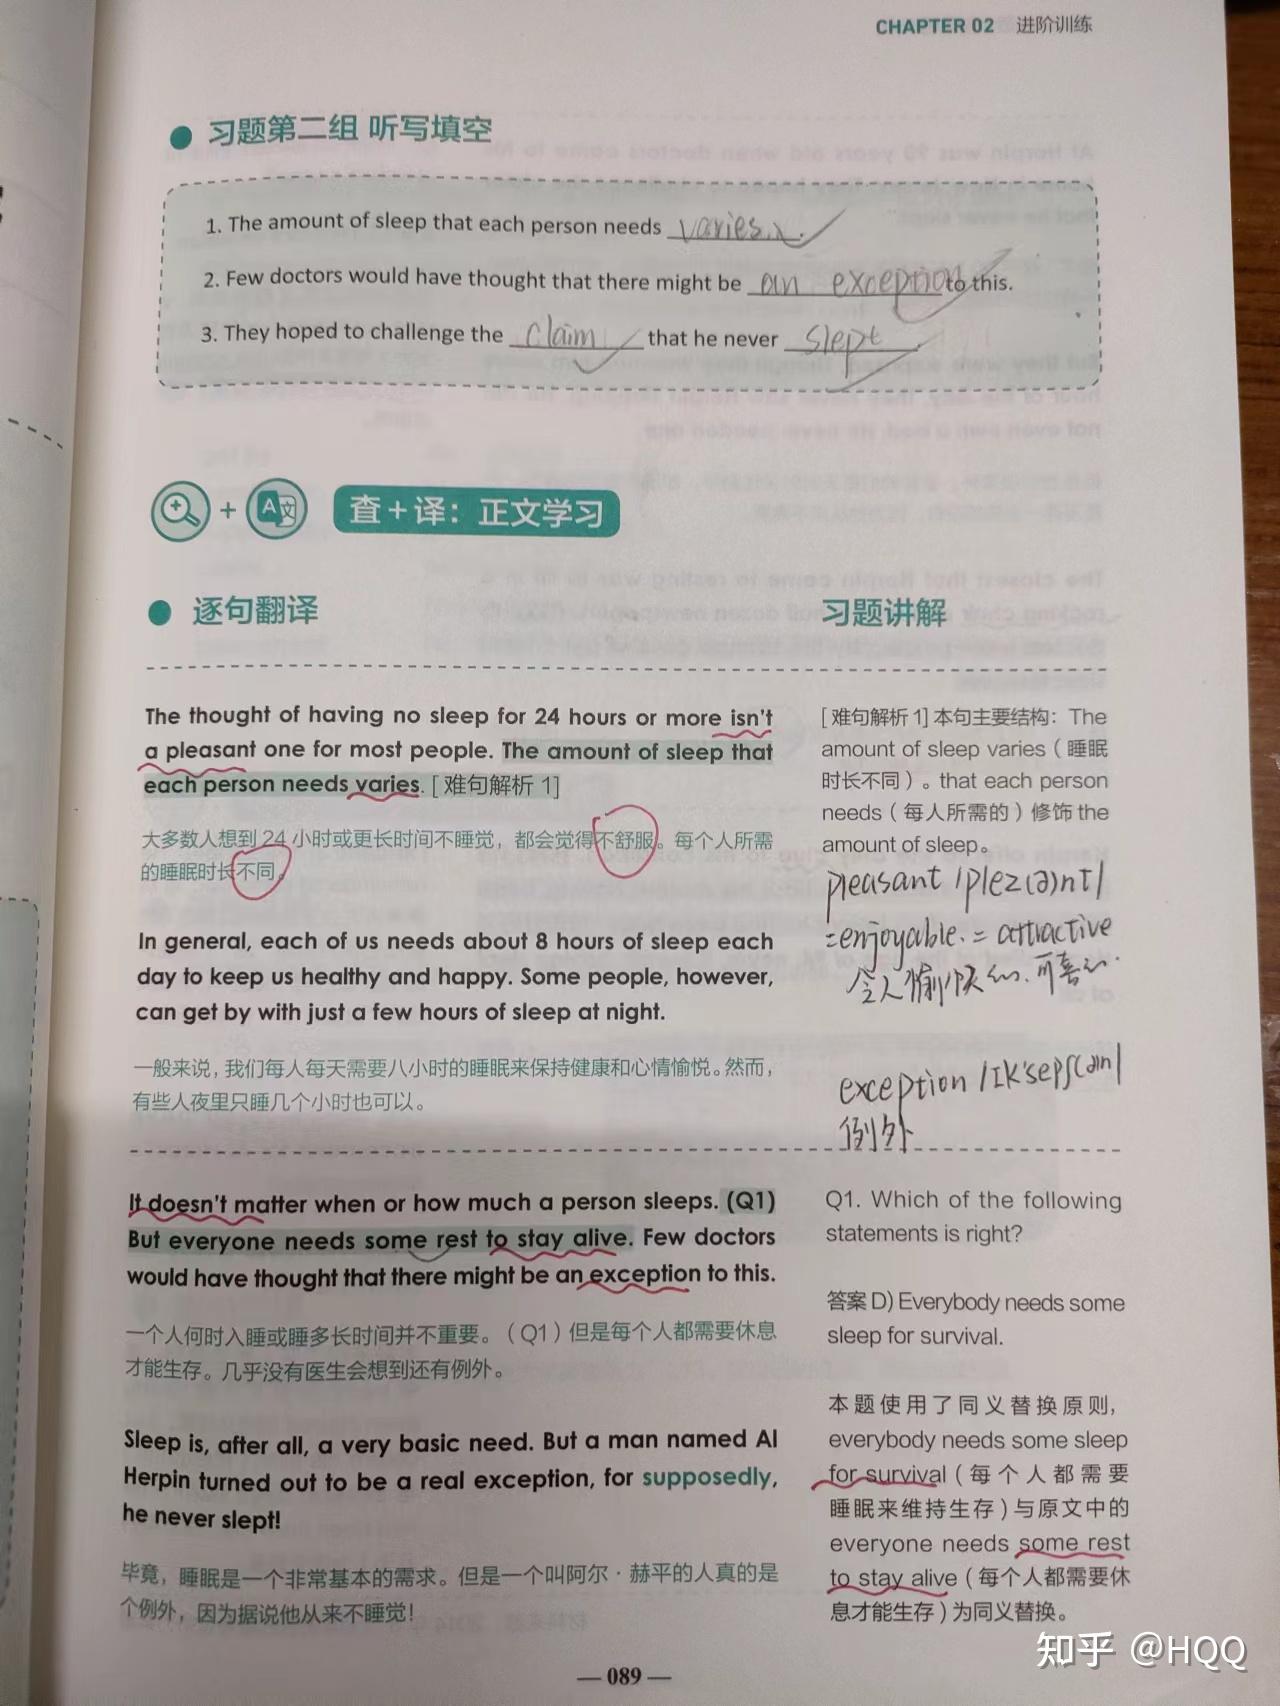 CHAPTER 02 进阶训练
习题第二组 听写填空
1. The amount of sleep that each person needs varies.
2. Few doctors would have thought that there might be an exception to this.
3. They hoped to challenge the claim that he never slept.
查+译：正文学习
逐句翻译
The thought of having no sleep for 24 hours or more isn't
a pleasant one for most people. The amount of sleep that
each person needs varies. [难句解析 1]
大多数人想到 24 小时或更长时间不睡觉，都会觉得不舒服。每个人所需
的睡眠时长不同。
In general, each of us needs about 8 hours of sleep each
day to keep us healthy and happy. Some people, however,
can get by with just a few hours of sleep at night.
一般来说，我们每人每天需要八小时的睡眠来保持健康和心情愉悦。然而，
有些人夜里只睡几个小时也可以。
It doesn't matter when or how much a person sleeps. (Q1)
But everyone needs some rest to stay alive. Few doctors
would have thought that there might be an exception to this.
一个人何时入睡或睡多长时间并不重要。（Q1）但是每个人都需要休息
才能生存。几乎没有医生会想到还有例外。
Sleep is, after all, a very basic need. But a man named Al
Herpin turned out to be a real exception, for supposedly,
he never slept!
毕竟，睡眠是一个非常基本的需求。但是一个叫阿尔·赫平的人真的是
个例外，因为据说他从来不睡觉！
习题讲解
[难句解析1]本句主要结构：The
amount of sleep varies（睡眠
时长不同）。that each person
needs（每人所需的）修饰 the
amount of sleep。
pleasant /plez(ə)nt/
=enjoyable. = attractive
令人愉快的、可喜的.
exception /ɪk'sepʃ(ə)n/
例外
Q1. Which of the following
statements is right?
答案 D) Everybody needs some
sleep for survival.
本题使用了同义替换原则，
everybody needs some sleep
for survival（每个人都需要
睡眠来维持生存）与原文中的
everyone needs some rest
to stay alive（每个人都需要休
息才能生存）为同义替换。
— 089 —
知乎 @HQQ